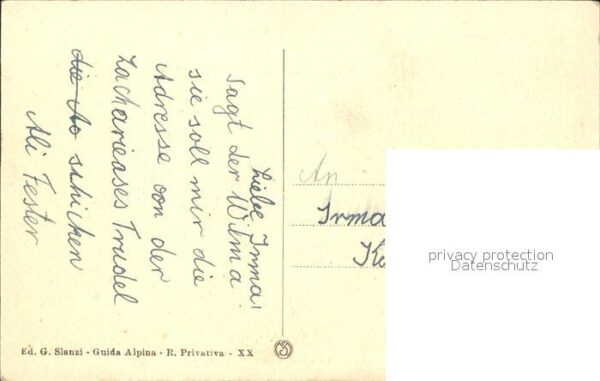 Liebe Irma!
Sagt der Wilma
sie soll mir die
Adresse von der
Zachariases Trudel
die Ao schicken
Ali Fester
An
Irma
Ke
privacy protection
Datenschutz
Ed. G. Slanzi - Guida Alpina - R. Privativa - XX